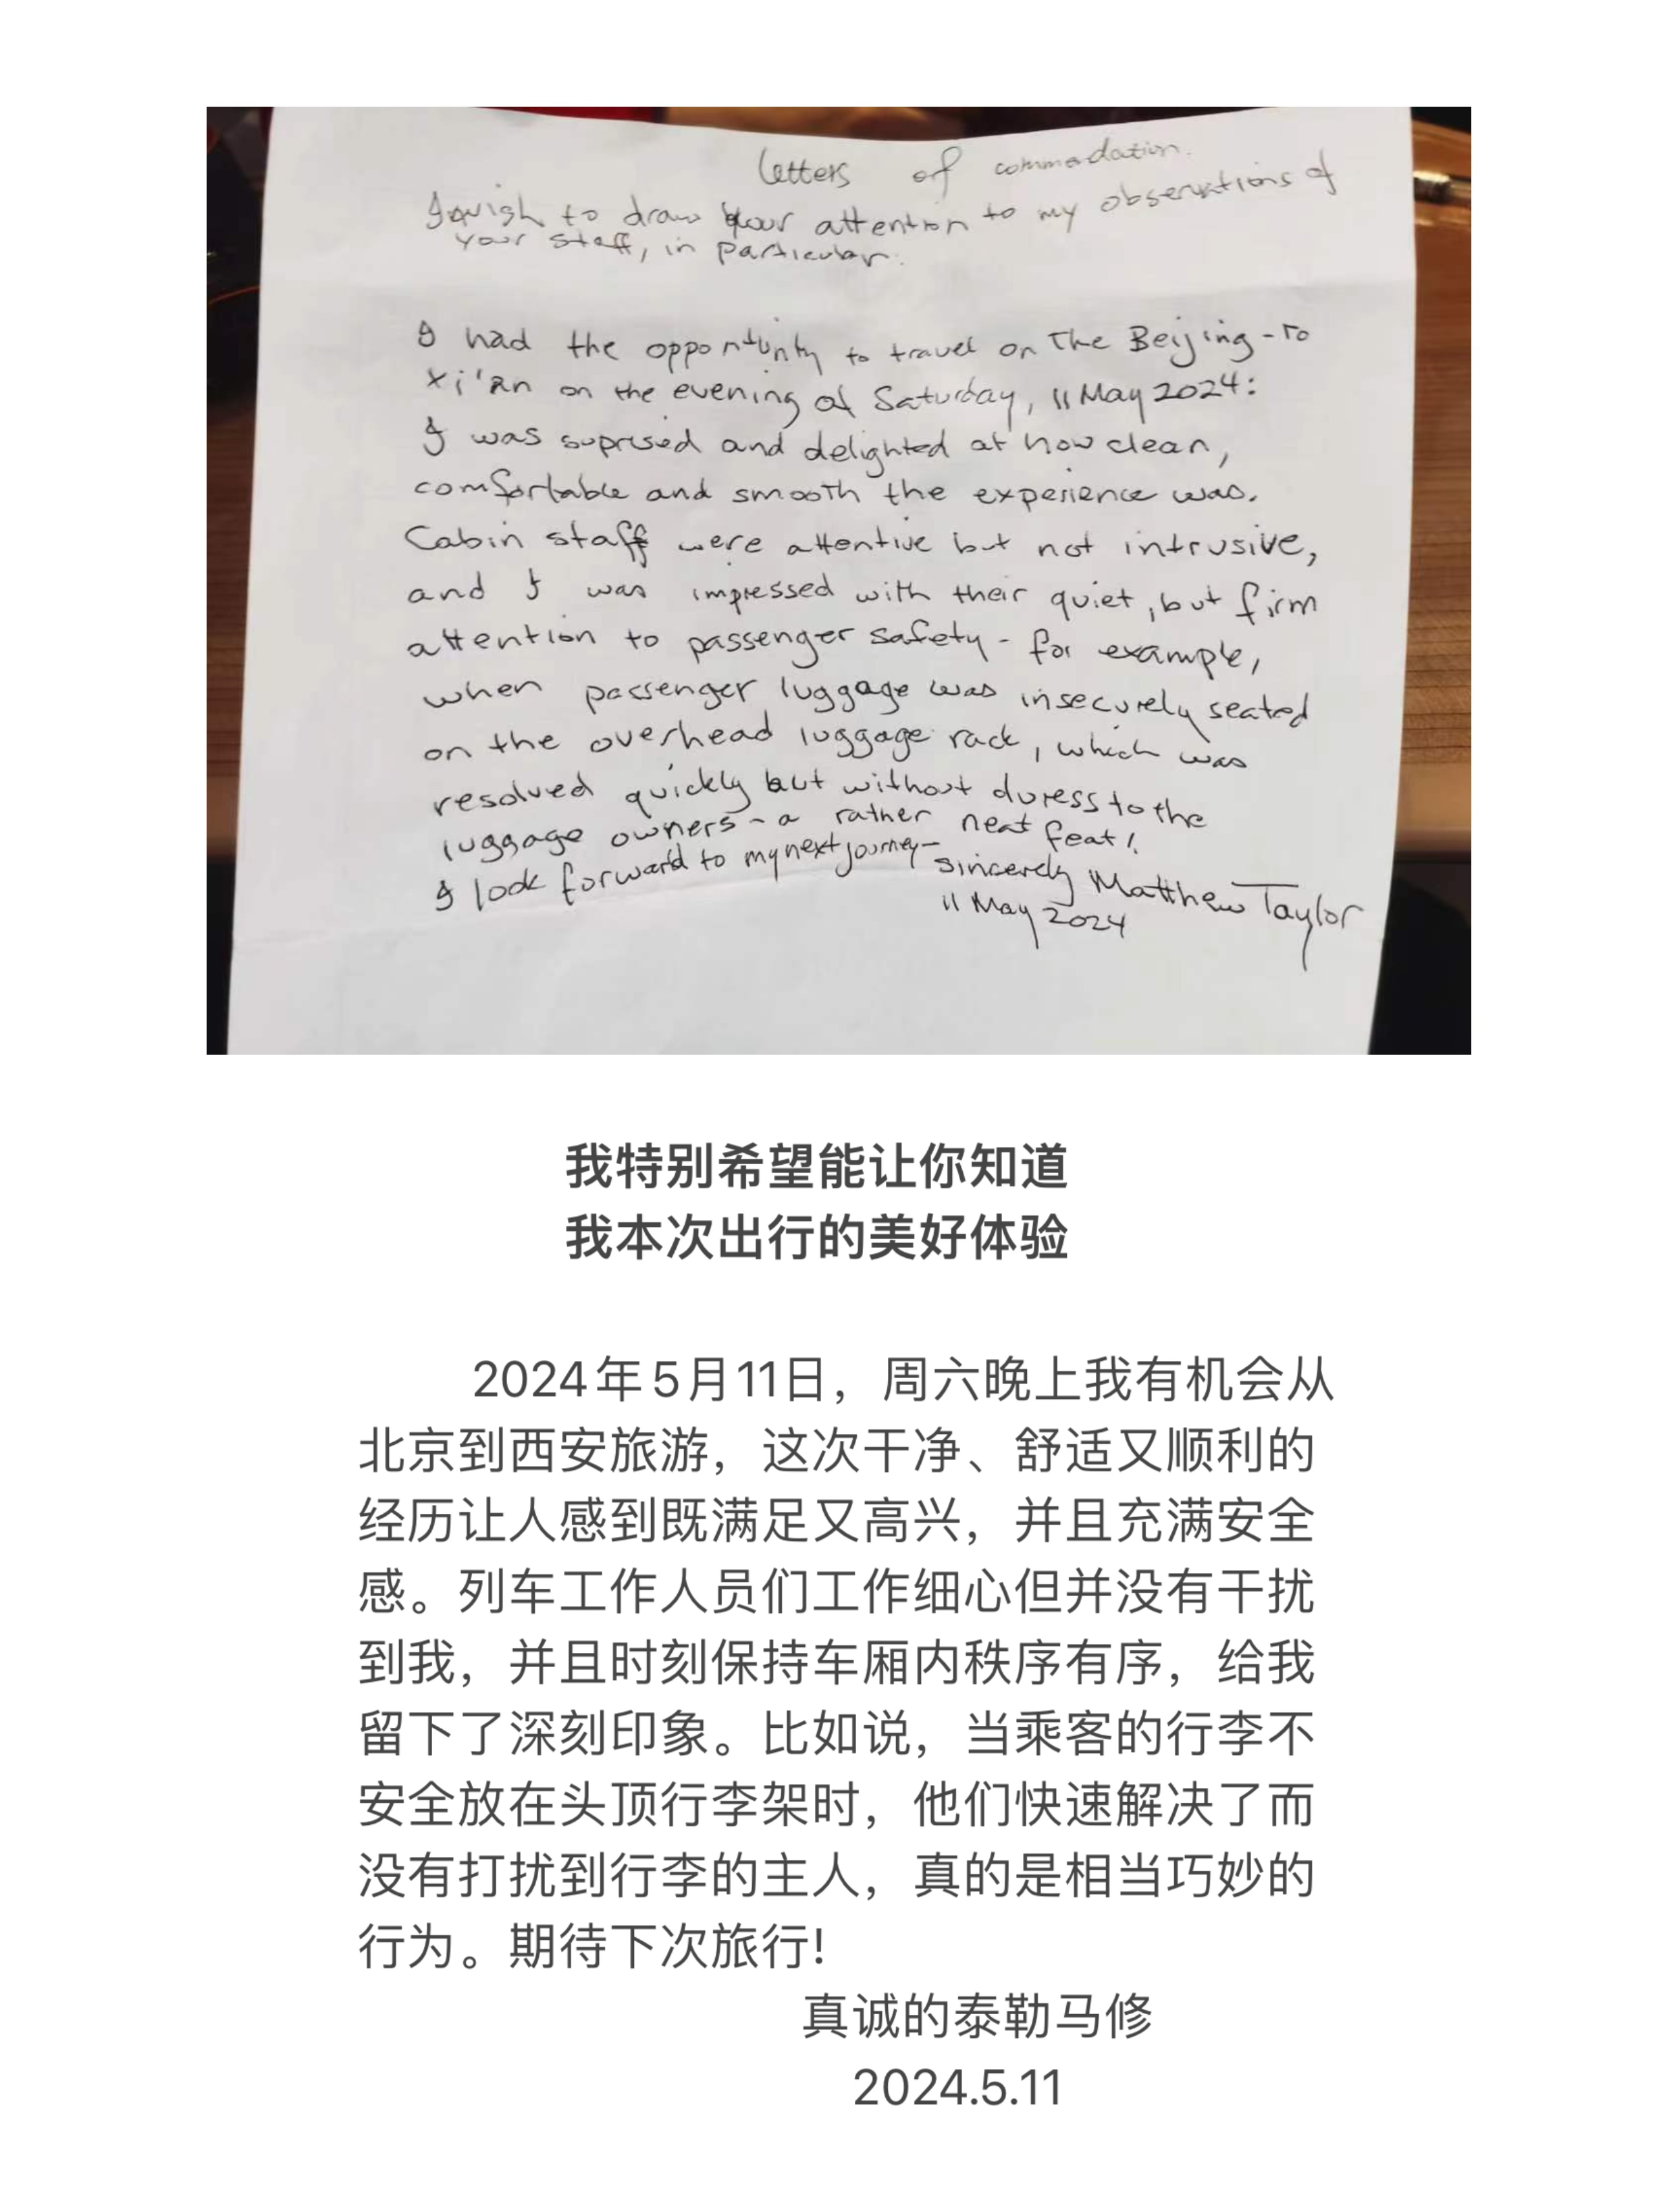 Letters of commendation.
I wish to draw your attention to my observations of
your staff, in particular:
I had the opportunity to travel on The Beijing-To
Xi'an on the evening of Saturday, 11 May 2024:
I was suprised and delighted at how clean,
comfortable and smooth the experience was.
Cabin staff were attentive but not intrusive,
and I was impressed with their quiet, but firm
attention to passenger safety - for example,
when passenger luggage was insecurely seated
on the overhead luggage rack, which was
resolved quickly but without duress to the
luggage owners - a rather neat feat!
I look forward to my next journey -
sincerely Matthew Taylor
11 May 2024
我特别希望能让你知道
我本次出行的美好体验
2024年5月11日，周六晚上我有机会从
北京到西安旅游，这次干净、舒适又顺利的
经历让人感到既满足又高兴，并且充满安全
感。列车工作人员们工作细心但并没有干扰
到我，并且时刻保持车厢内秩序有序，给我
留下了深刻印象。比如说，当乘客的行李不
安全放在头顶行李架时，他们快速解决了而
没有打扰到行李的主人，真的是相当巧妙的
行为。期待下次旅行!
真诚的泰勒马修
2024.5.11